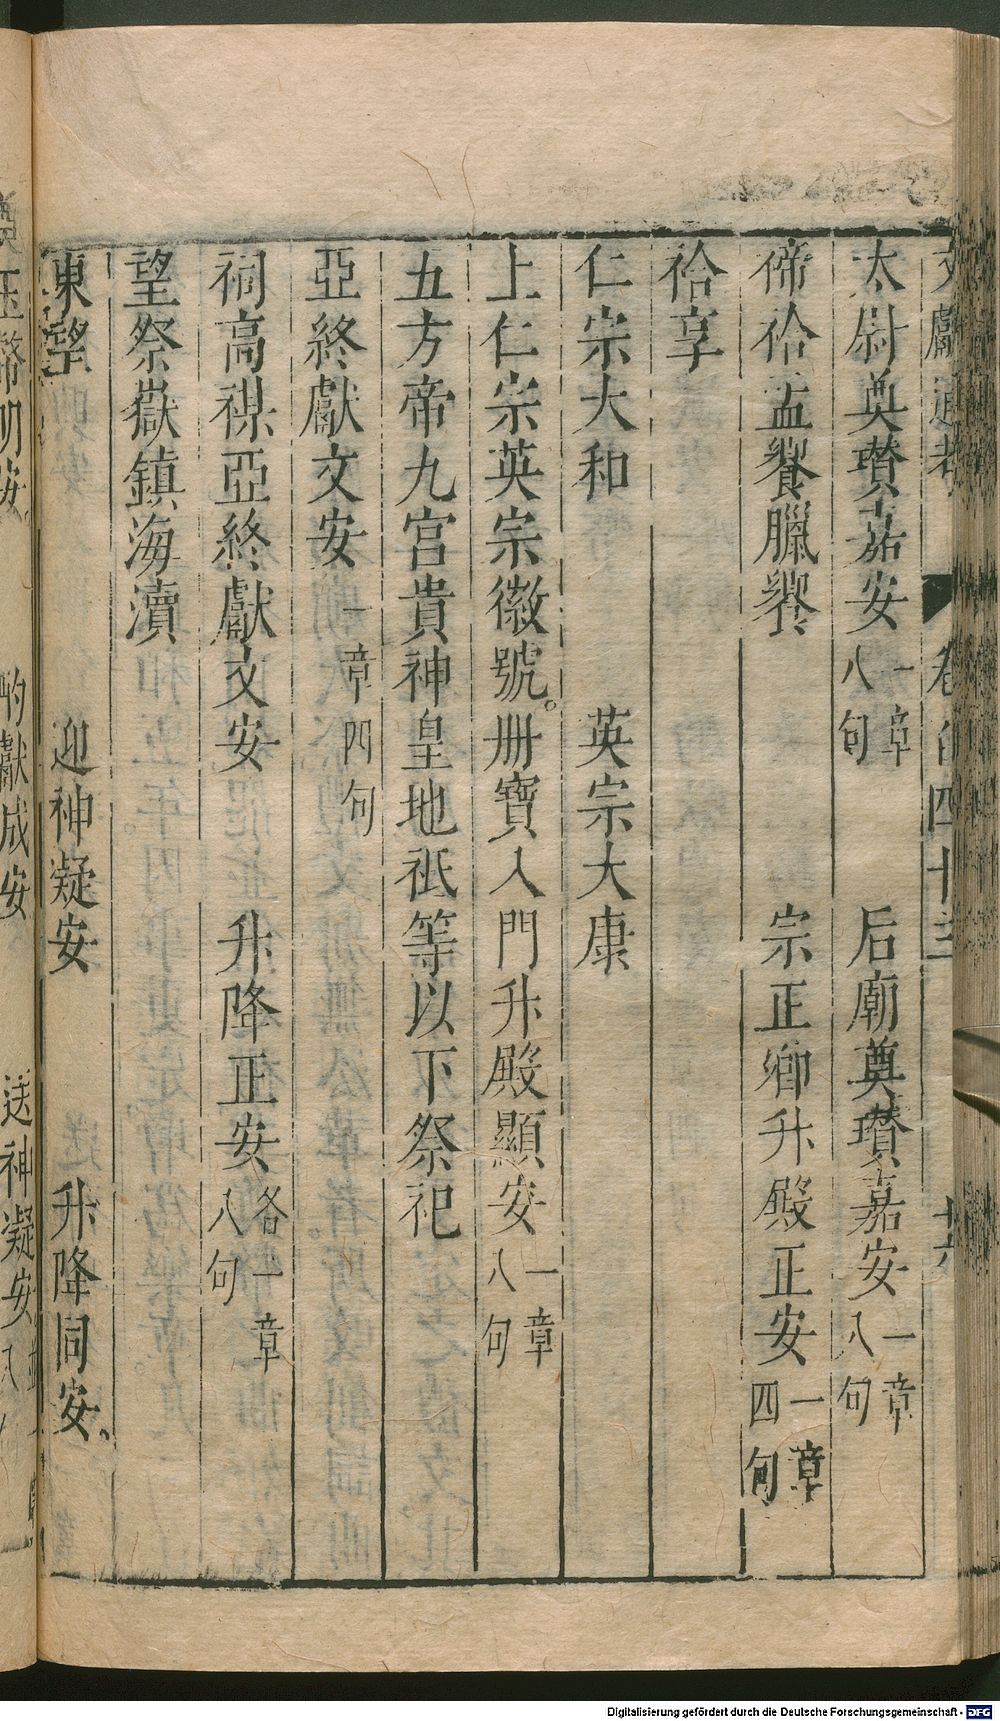 文獻通考 卷百四十三 十六
太尉奠瓚嘉安一章八句 后廟奠瓚嘉安一章八句
禘祫孟饗臘饗 宗正卿升殿正安一章四句
祫享
仁宗大和 英宗大康
上仁宗英宗徽號。册寶入門升殿顯安一章八句
五方帝九宮貴神皇地祇等以下祭祀
亞終獻文安一章四句
祠高禖亞終獻文安 升降正安各一章八句
望祭嶽鎮海瀆
東望 迎神凝安 升降同安。
玉幣明安。 酌獻成安 送神凝安
Digitalisierung gefördert durch die Deutsche Forschungsgemeinschaft - DFG